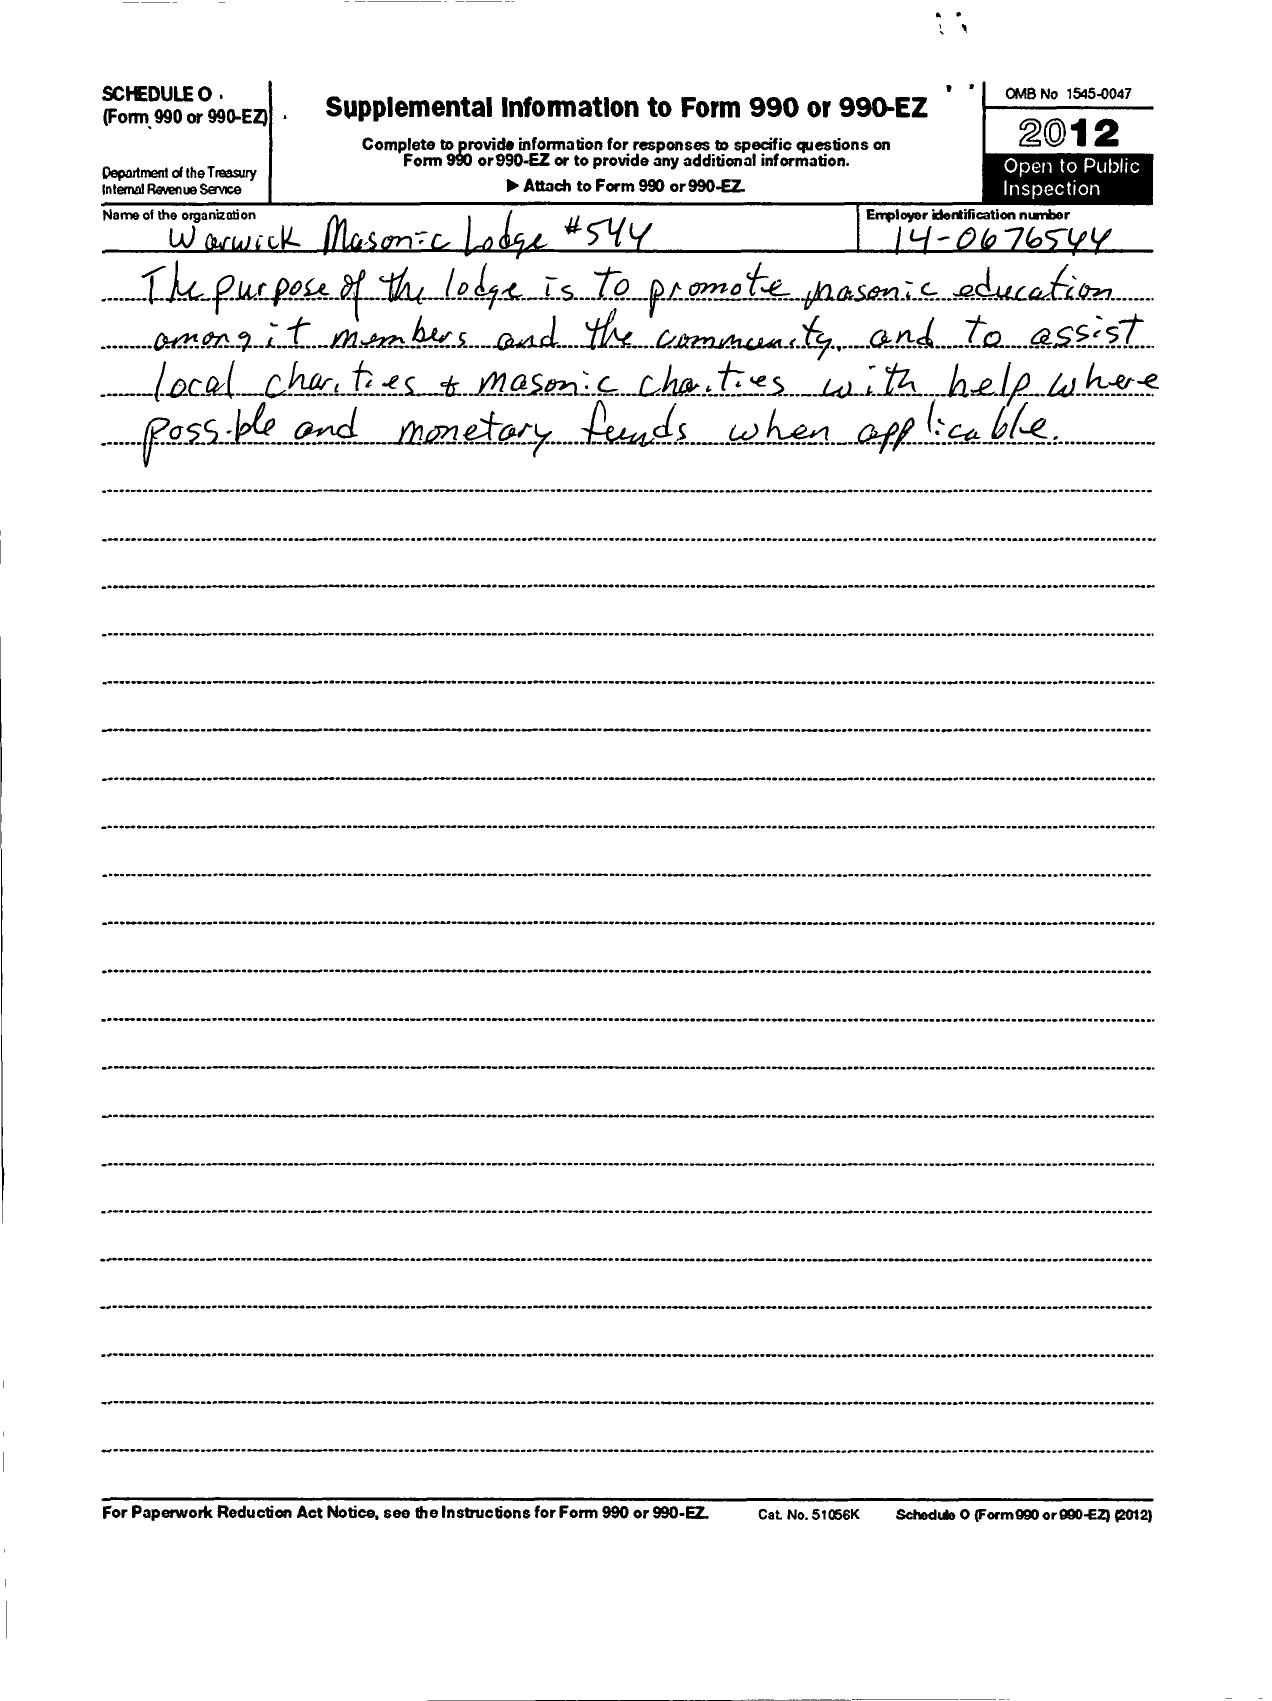 SCHEDULE O
(Form 990 or 990-EZ)
Department of the Treasury
Internal Revenue Service
Supplemental Information to Form 990 or 990-EZ
Complete to provide information for responses to specific questions on
Form 990 or 990-EZ or to provide any additional information.
▶ Attach to Form 990 or 990-EZ.
OMB No 1545-0047
2012
Open to Public
Inspection
Name of the organization
Warwick Masonic Lodge #544
Employer identification number
14-0676544
The purpose of the lodge is to promote masonic education
among it members and the community, and to assist
local charities & masonic charities with help where
possible and monetary funds when applicable.
For Paperwork Reduction Act Notice, see the Instructions for Form 990 or 990-EZ.
Cat. No. 51056K
Schedule O (Form 990 or 990-EZ) (2012)